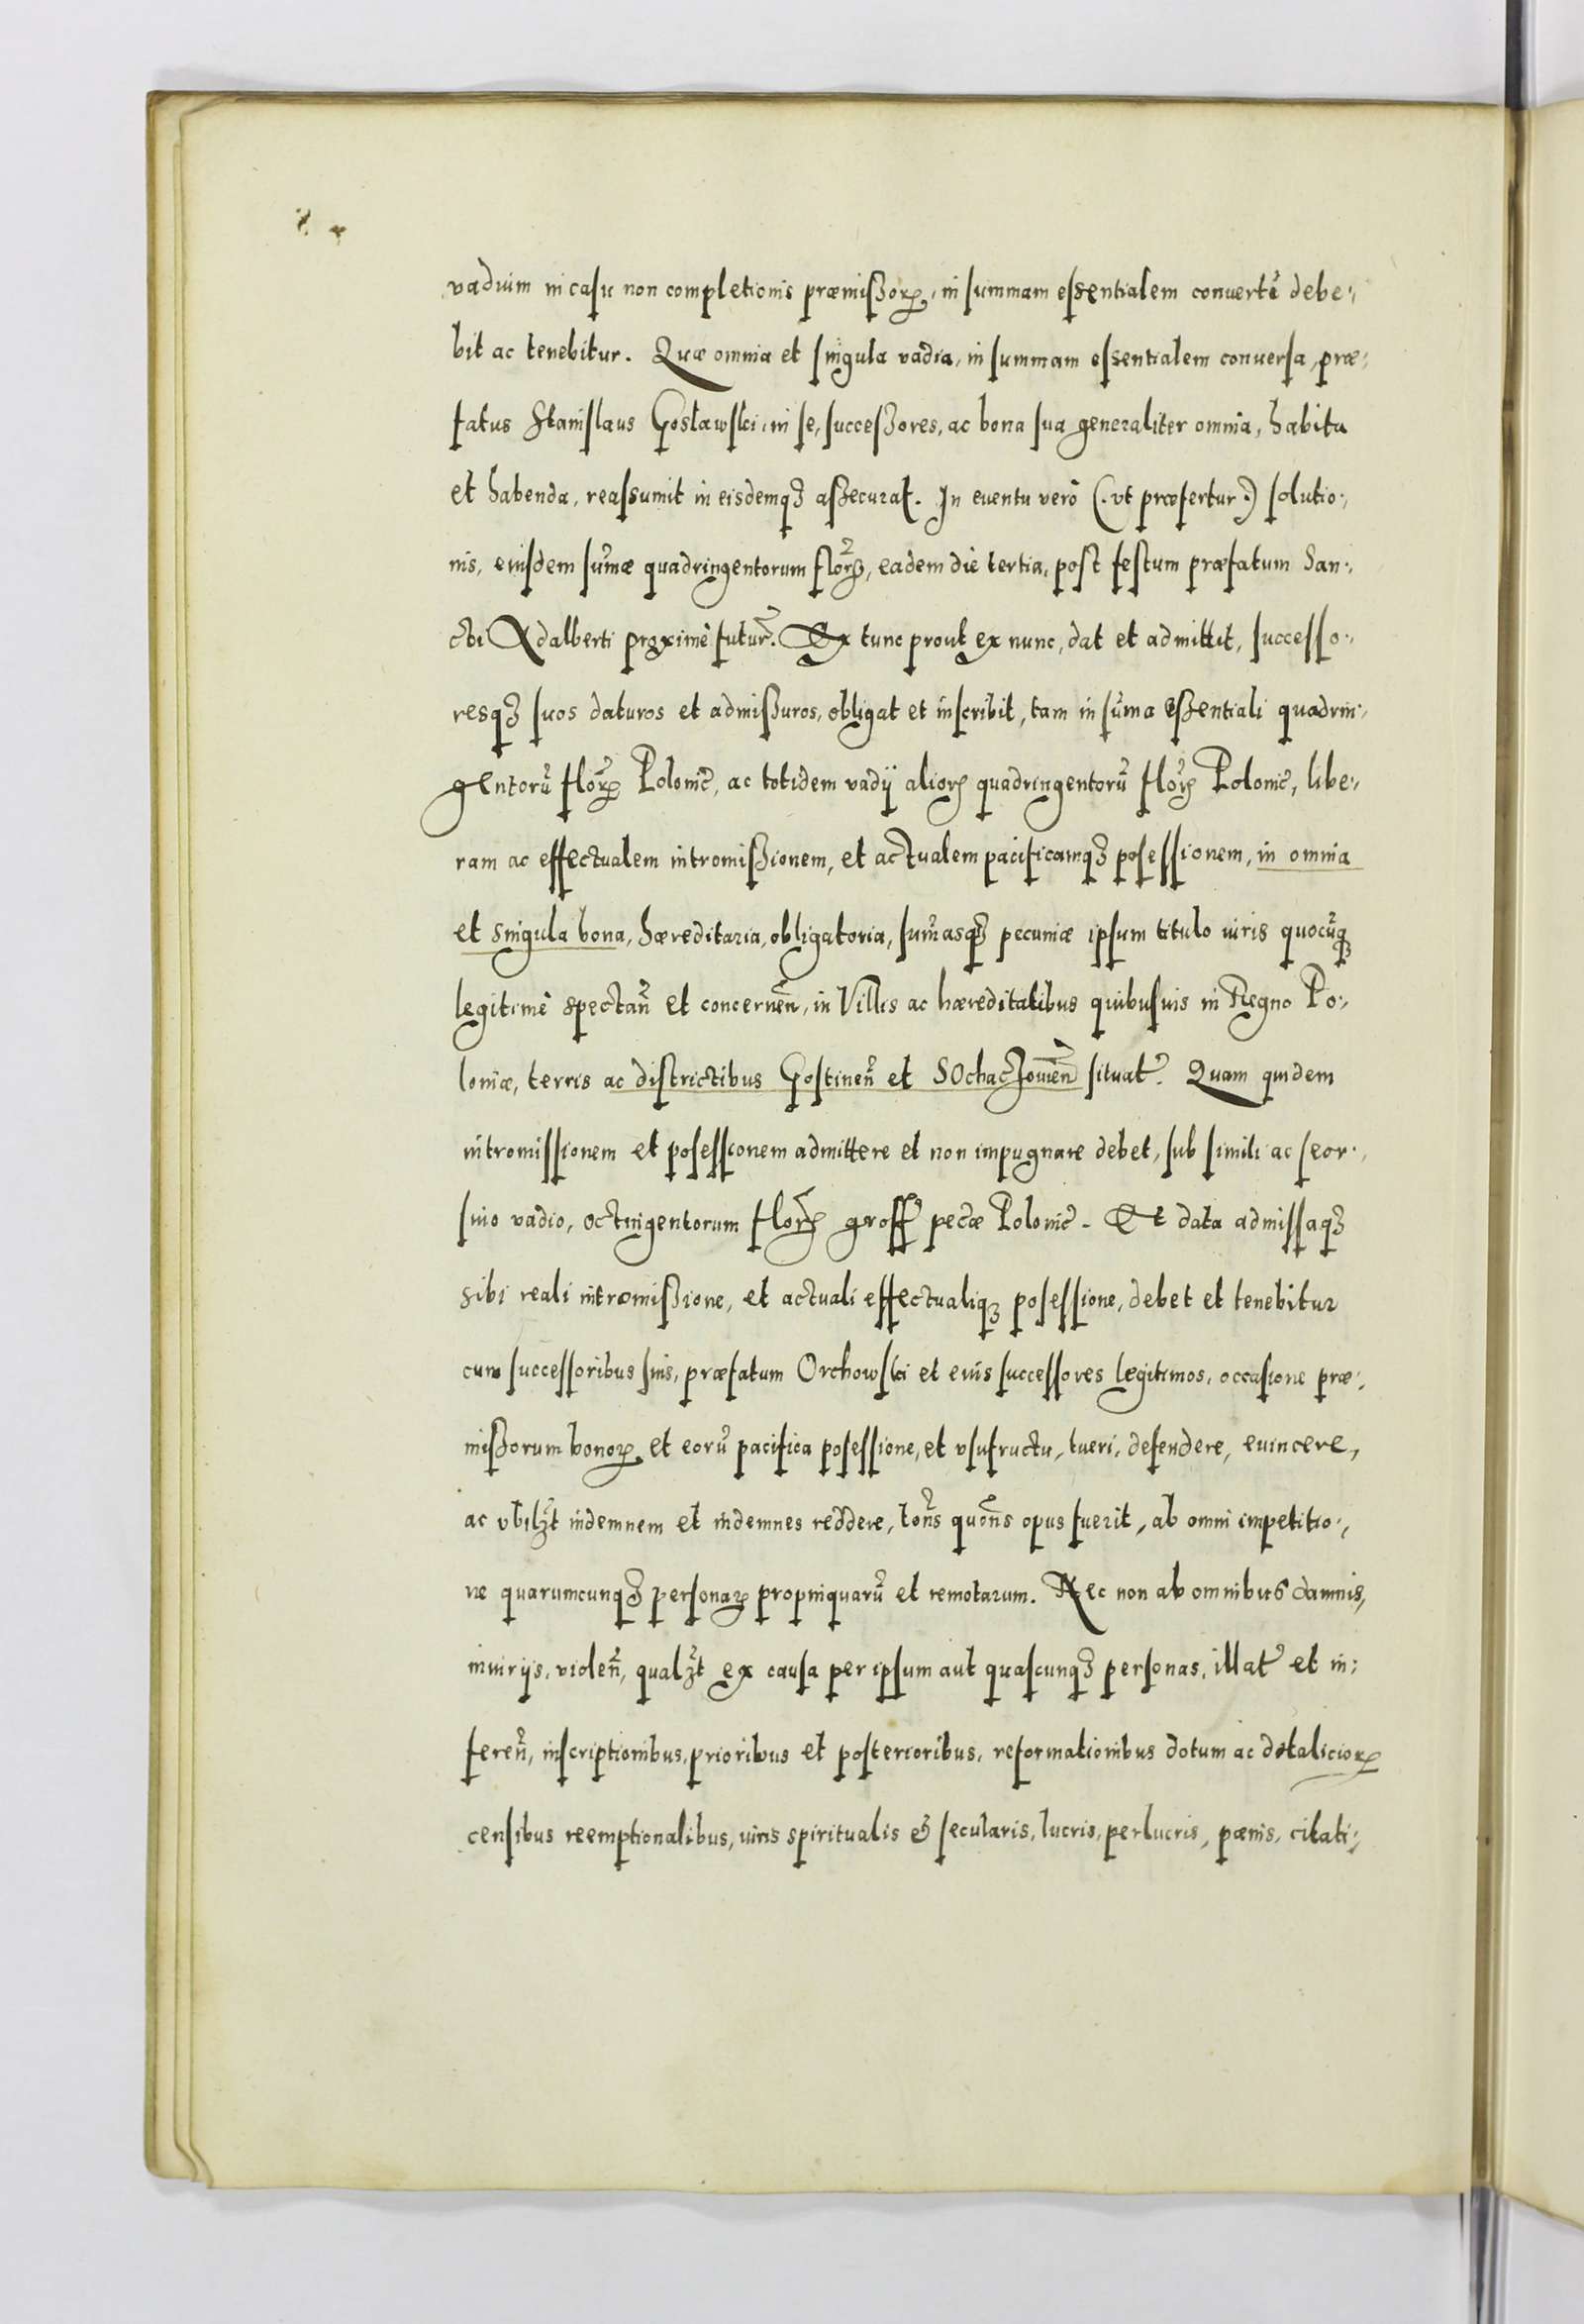 vadium in casu non completionis præmißorꝝ, in summam essentialem conuerti debe-,
bit ac tenebitur. Quæ omnia et singula vadia, in summam essentialem conuersa, præ-,
fatus Stanislaus Gosławski, in se, succeßores, ac bona sua generaliter omnia, habita
et habenda, reassumit in eisdemqꝫ aßecurat. In euentu verò (.vt præfertur.) solutio-,
nis, eiusdem sum̃æ quadringentorum flor̃ꝝ, eadem die tertia, post festum præfatum San-,
cti Adalberti proximè futur̃. Ex tunc prout ex nunc, dat et admittit, successo-,
resqꝫ suos daturos et admißuros, obligat et inscribit, tam in sum̃a eßentiali quadrin-,
gentorũ flor̃ꝝ Polonic̃, ac totidem vadij aliorꝝ quadringentorũ flor̃ꝝ Polonic̃, libe-,
ram ac effectualem intromißionem, et actualem pacificamqꝫ posessionem, in omnia
et singula bona, hæreditaria, obligatoria, sum̃asqꝫ pecuniæ ipsum titulo iuris quocũqꝫ
legitimè spectañ et concerneñ, in Villis ac hæreditatibus quibusuis in Regno Po-,
loniæ, terris ac districtibus Gostineñ et Sochaczouieñ situat̃. Quam quidem
intromissionem et posessionem admittere et non impugnare debet, sub simili ac seor-,
siuo vadio, octingentorum flor̃ꝝ gross̃ pecæ Polonic̃. Et data admissaqꝫ
sibi reali intromißione, et actuali effectualiqꝫ posessione, debet et tenebitur
cum successoribus suis, præfatum Orchowski et eius successores legitimos, occasione præ-,
mißorum bonorꝝ, et eorũ pacifica posessione, et vsufructu, tueri, defendere, euincere,
ac vbilꝫt indemnem et indemnes reddere, totñs quotñs opus fuerit, ab omni impetitio-,
ne quarumcunqꝫ personaꝝ propinquarũ et remotarum. Nec non ab omnibus damnis,
iniurijs, violeñ, qualꝫt ex causa per ipsum aut quascunqꝫ personas, illat̃ et in-,
fereñ, inscriptionibus, prioribus et posterioribus, reformationibus dotum ac dotaliciorꝝ
censibus reemptionalibus, iuris spiritualis & secularis, lucris, perlucris, pœnis, citati-,